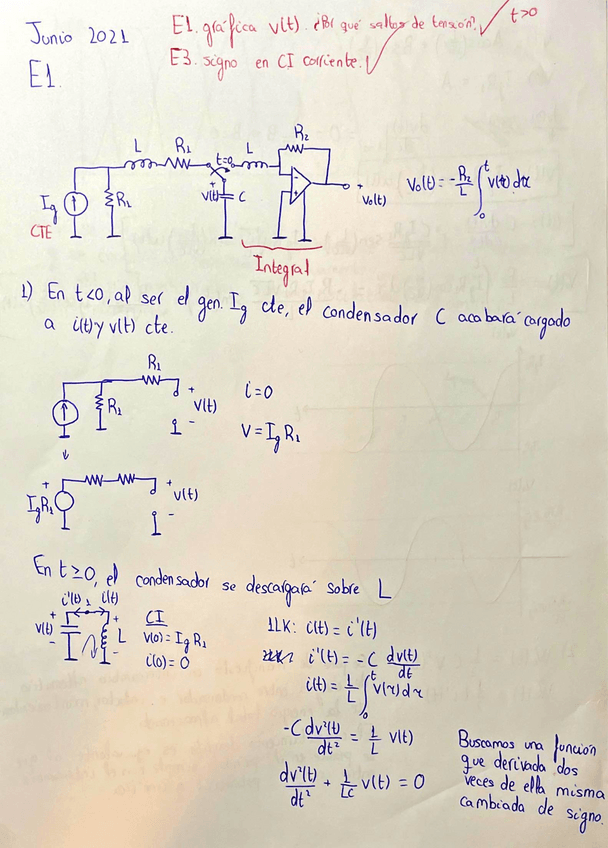 Junio 2021
E1. gráfica v(t). ¿Por qué saltos de tensión? t>0
E3. signo en CI corriente.
E1.
L R₁ t=0 L R₂
Ig R₁ v(t) + C + Vo(t)
CTE
Vo(t) = -R₂/L ∫₀ᵗ v(x) dx
Integral
1) En t<0, al ser el gen. Ig cte, el condensador C acabará cargado
a i(t) y v(t) cte.
R₁
R₁ + v(t) - i=0
V = Ig R₁
+ IgR₁ + v(t) -
En t≥0, el condensador se descargará sobre L
i'(t) i(t)
+ v(t) - L + -
CI
v(0) = Ig R₁
i(0) = 0
1LK: i(t) = i'(t)
i'(t) = -C dv(t)/dt
i(t) = 1/L ∫₀ᵗ v(x) dx
-C dv²(t)/dt² = 1/L v(t)
dv²(t)/dt² + 1/LC v(t) = 0
Buscamos una función
que derivada dos
veces de ella misma
cambiada de signo.